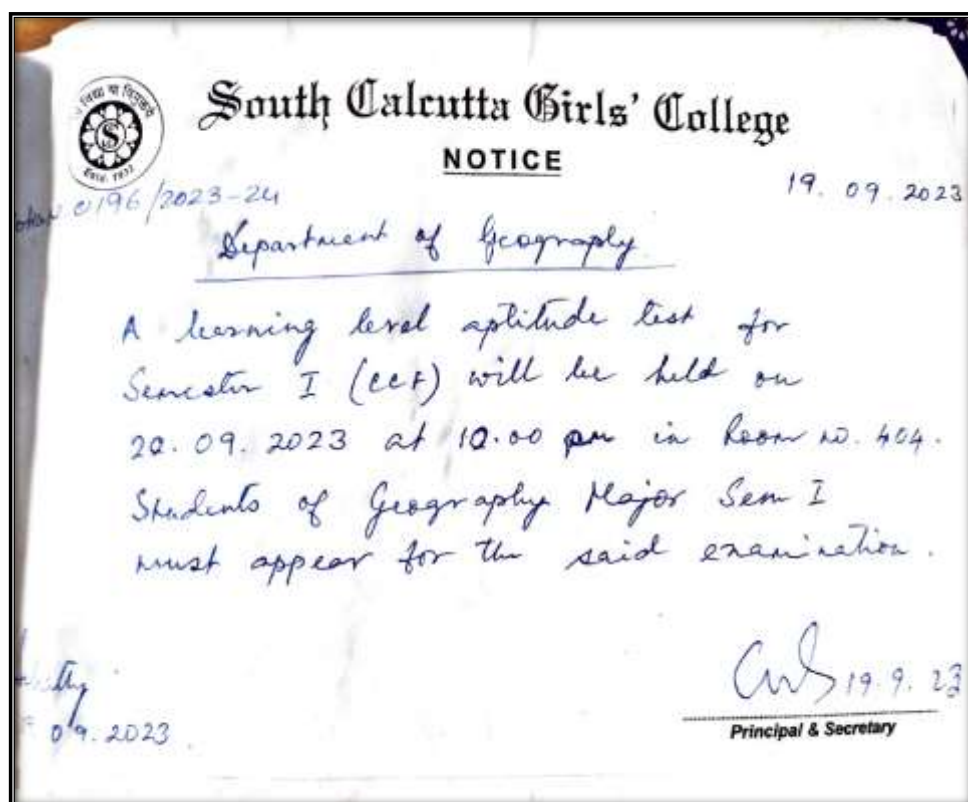 South Calcutta Girls' College
NOTICE
সা বিদ্যা যা বিমুক্তয়ে
S
Estd. 1932
0196/2023-24
19.09.2023
Department of Geography
A learning level aptitude test for
Semester I (CCF) will be held on
20.09.2023 at 12.00 pm in Room no. 404.
Students of Geography Major Sem I
must appear for the said examination.
09.2023
19.9.23
Principal & Secretary